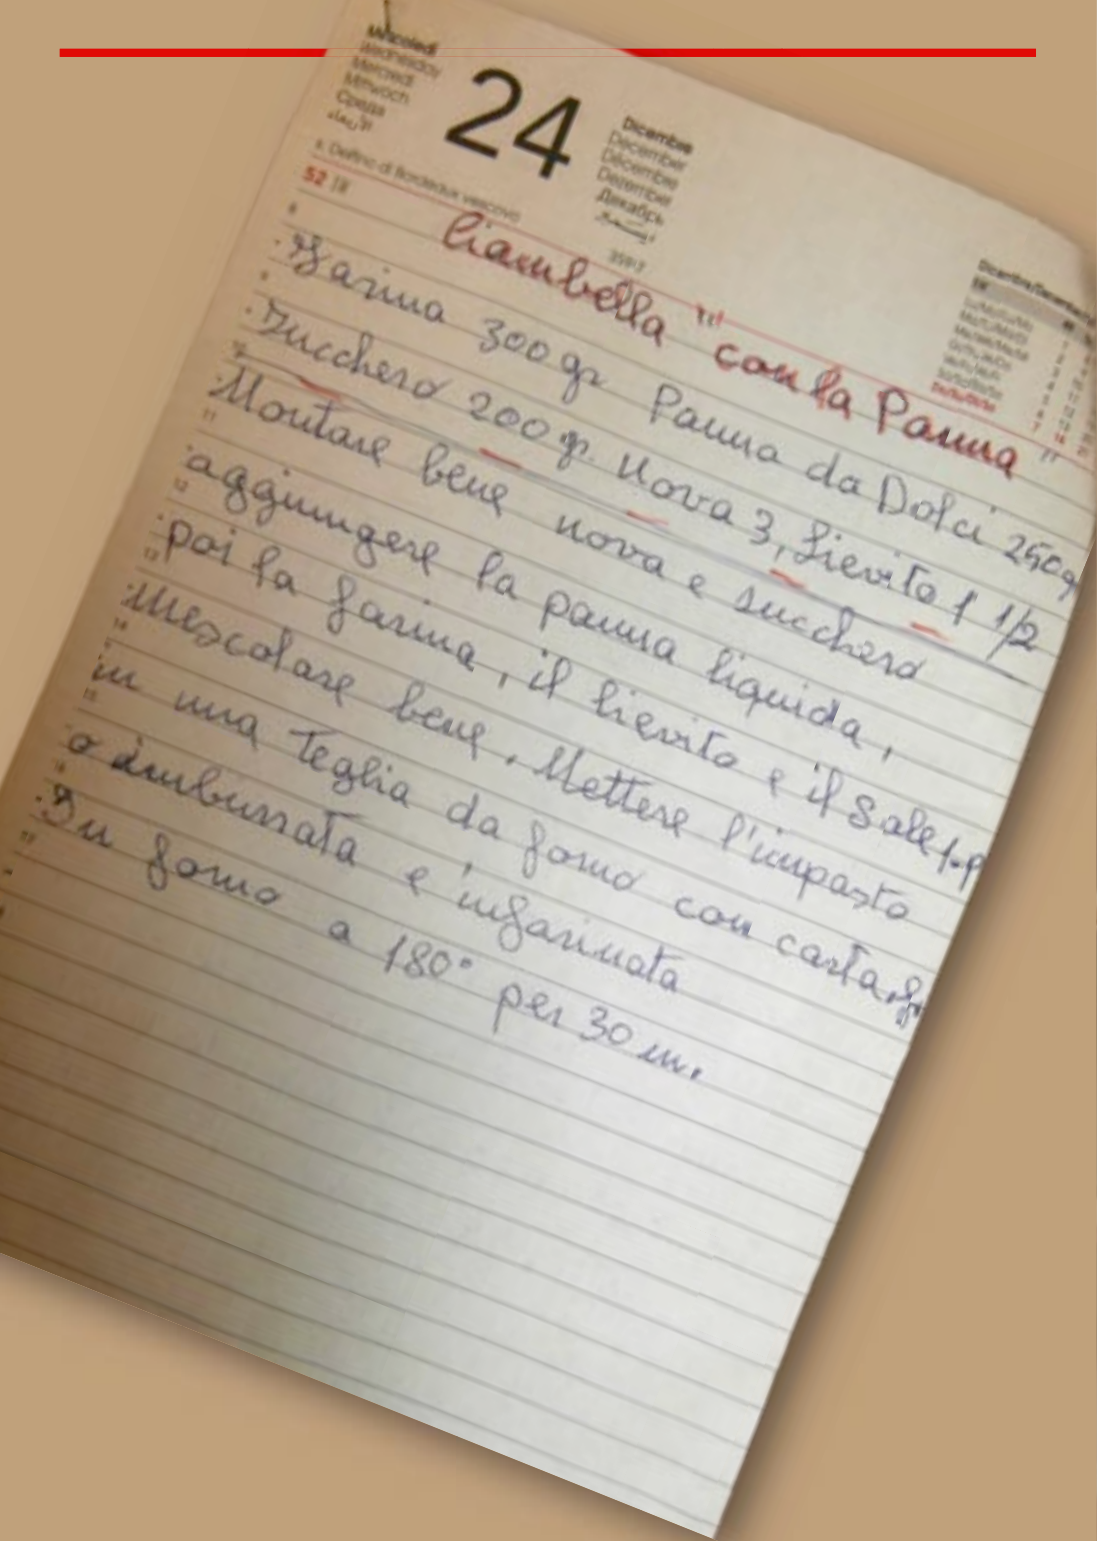 Mercoledì
Wednesday
Mercredi
Mittwoch
Среда
الأربعاء
24
Dicembre
December
Décembre
Dezember
Декабрь
ديسمبر
s. Delfino di Bordeaux vescovo
52
359-7
Ciambella "" con la Panna ""
8
· Farina 300 gr Panna da Dolci 250 g
9
· Zucchero 200 gr. Uova 3, Lievito 1 1/2
10
· Montare bene uova e zucchero
11
· aggiungere la panna liquida,
12
· poi la farina, il lievito e il Sale 1.p
13
· Mescolare bene. Mettere l'impasto
14
in una Teglia da forno con carta.
15
o imburrata e infarinata
16
· In forno a 180° per 30 m.
17